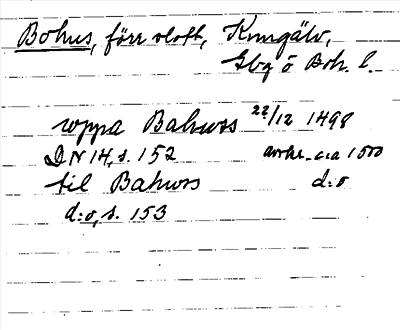 Bohus, förr slott, Kungälv,
Gbg o Boh. l.
uppa Bahws 22/12 1498
DN 14, s. 152 avskr. c:a 1500
til Bahws d:o
d:o, s. 153